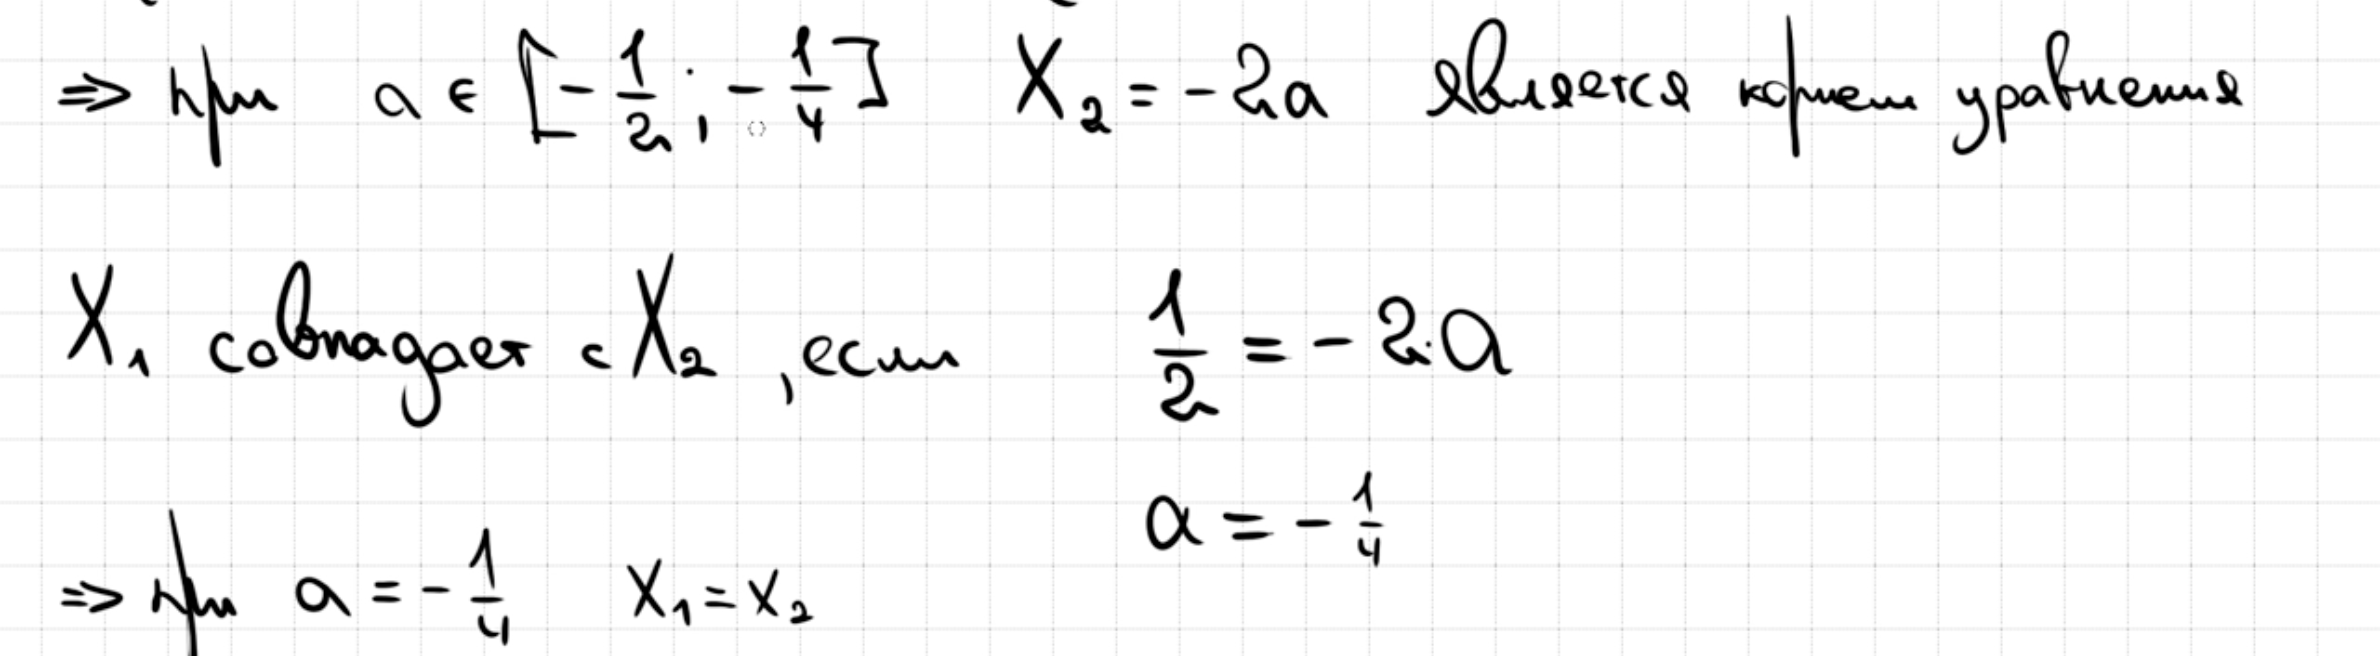 ⇒ при a ∈ [-1/2; -1/4] X₂ = -2a является корнем уравнения
X₁ совпадает с X₂, если 1/2 = -2a
a = -1/4
⇒ при a = -1/4 X₁ = X₂